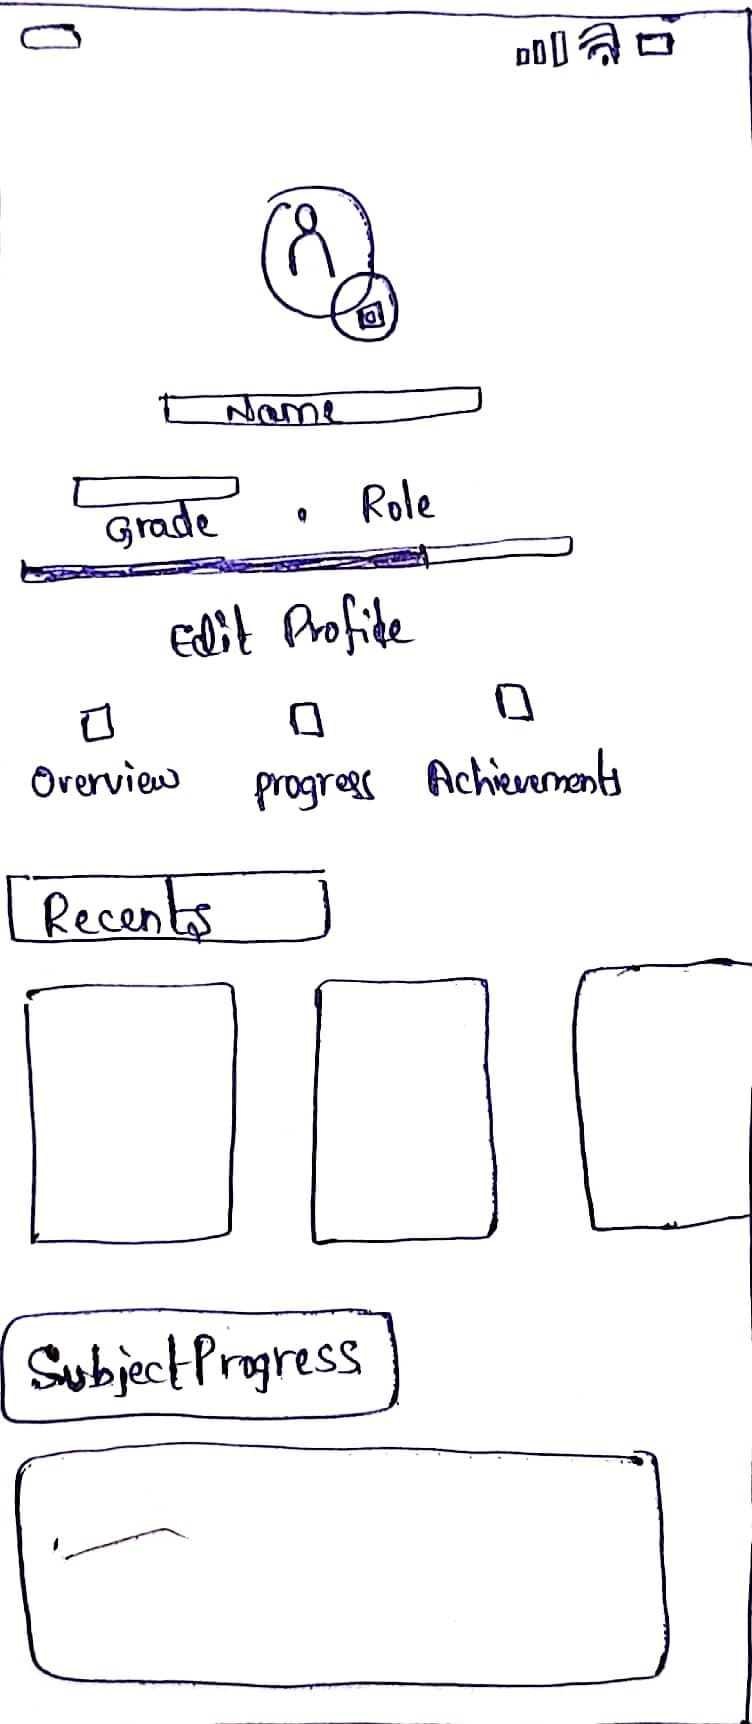 Name
Grade • Role
Edit Profile
Overview progress Achievements
Recents
Subject Progress